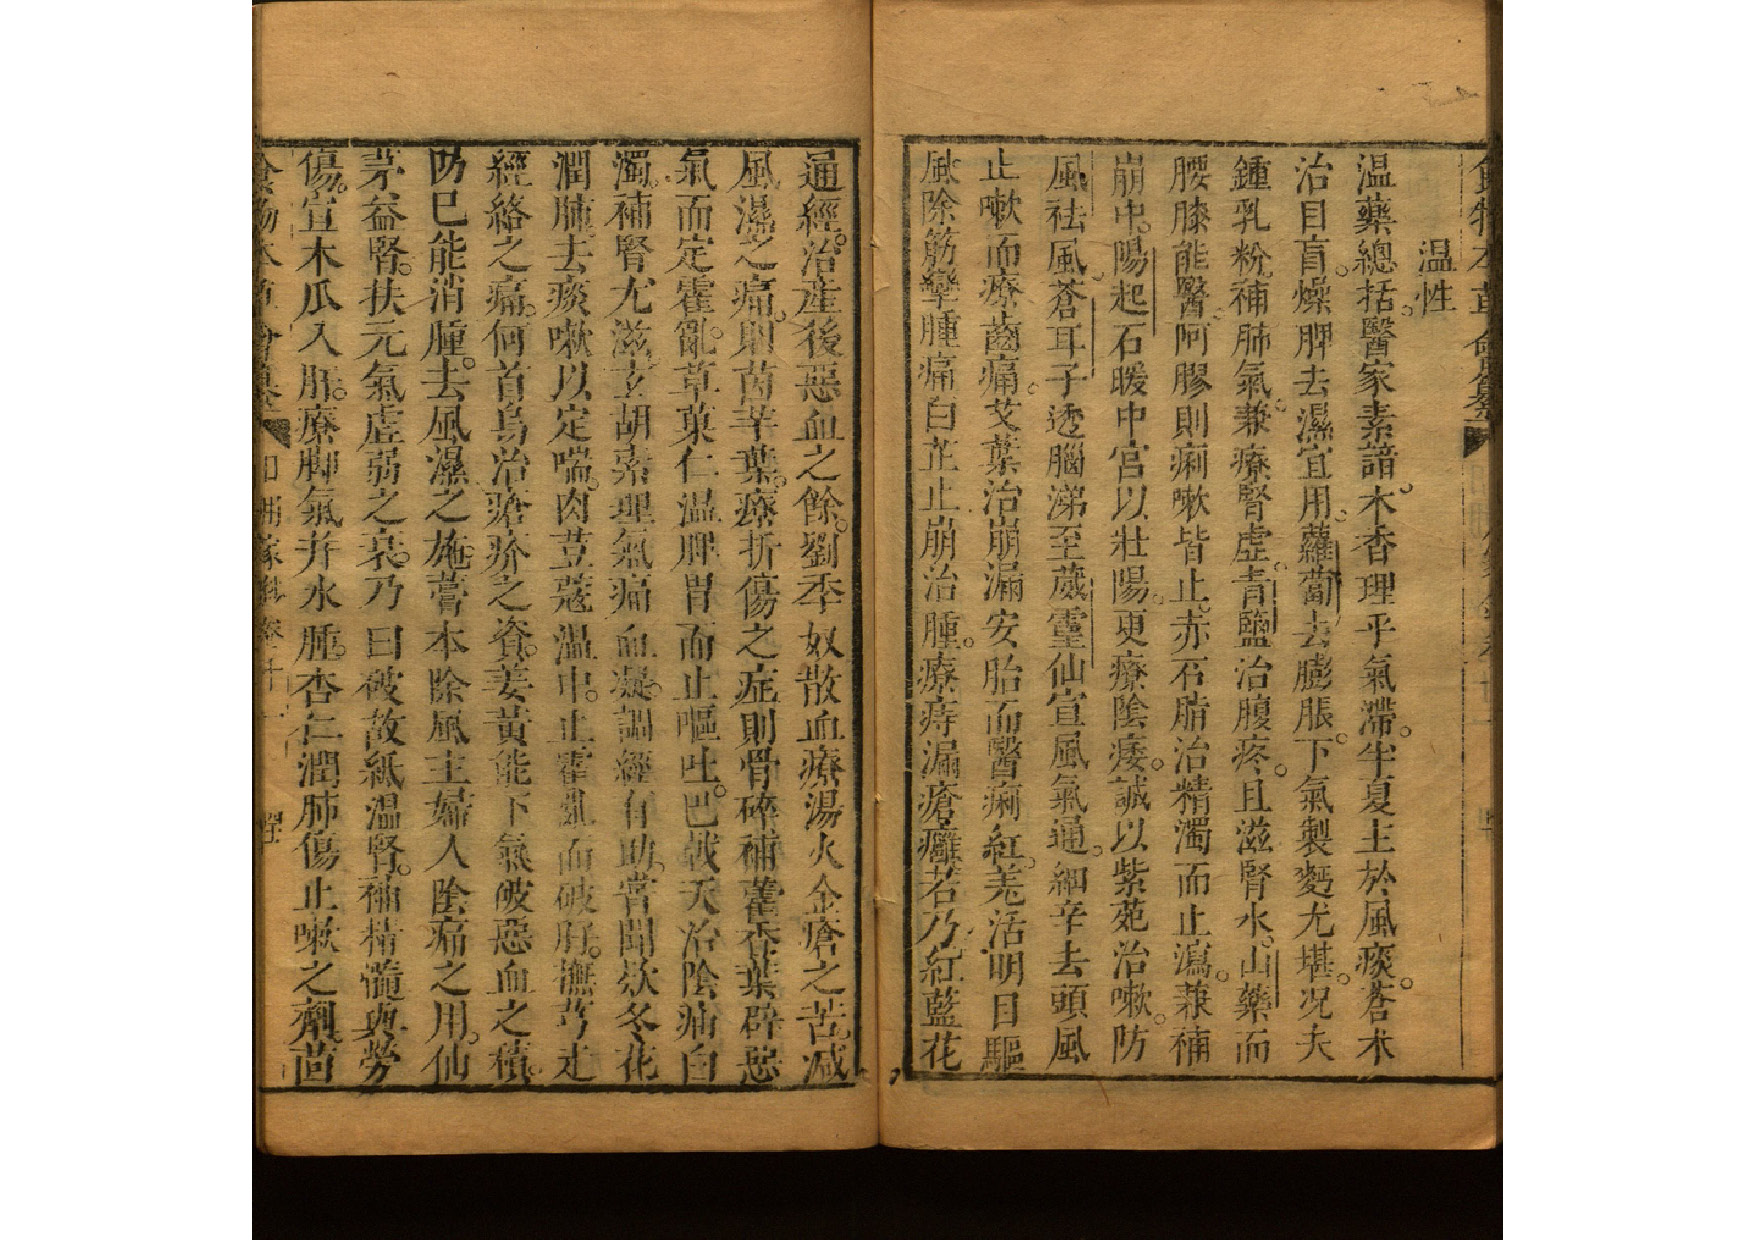 食物本草會纂
温性
温藥總括。醫家素諳。木香理乎氣滯。半夏主於風痰。蒼术
治目盲。燥脾去濕宜用。蘿蔔去膨脹。下氣製麪尤堪。况夫
鍾乳粉補肺氣。兼療腎虚。青鹽治腹疼。且滋腎水。山藥而
腰膝能醫。阿膠則痢嗽皆止。赤石脂治精濁而止瀉。兼補
崩中。陽起石暖中宫以壯陽。更療陰痿。誠以紫菀治嗽。防
風祛風。蒼耳子透腦涕至。葳靈仙宣風氣通。細辛去頭風
止嗽而療齒痛。艾葉治崩漏安胎而醫痢紅。羗活明目驅
風除筋攣腫痛白芷止崩治腫。療痔漏瘡癰若乃紅藍花
通經。治産後惡血之餘。劉季奴散血療湯火金瘡之苦。减
風濕之痛。則茵芋葉。療折傷之症則骨碎補藿香葉辟惡
氣而定霍亂。草菓仁温脾胃而止嘔吐。巴戟天治陰疝白
濁。補腎尤滋玄胡索理氣痛血凝。調經有助。嘗聞欵冬花
潤肺。去痰嗽以定喘。肉荳蔻温中。止霍亂而破肝。撫芎走
經絡之痛。何首烏治瘡疥之資。姜黄能下氣破惡血之積。
防已能消腫。去風濕之施。藁本除風主婦人陰痛之用。仙
茅益腎。扶元氣虚弱之衰。乃曰破故紙温腎。補精髓與勞
傷。宣木瓜入肝。療脚氣并水腫。杏仁潤肺傷止嗽之劑茴
食物本草會纂 卷十一